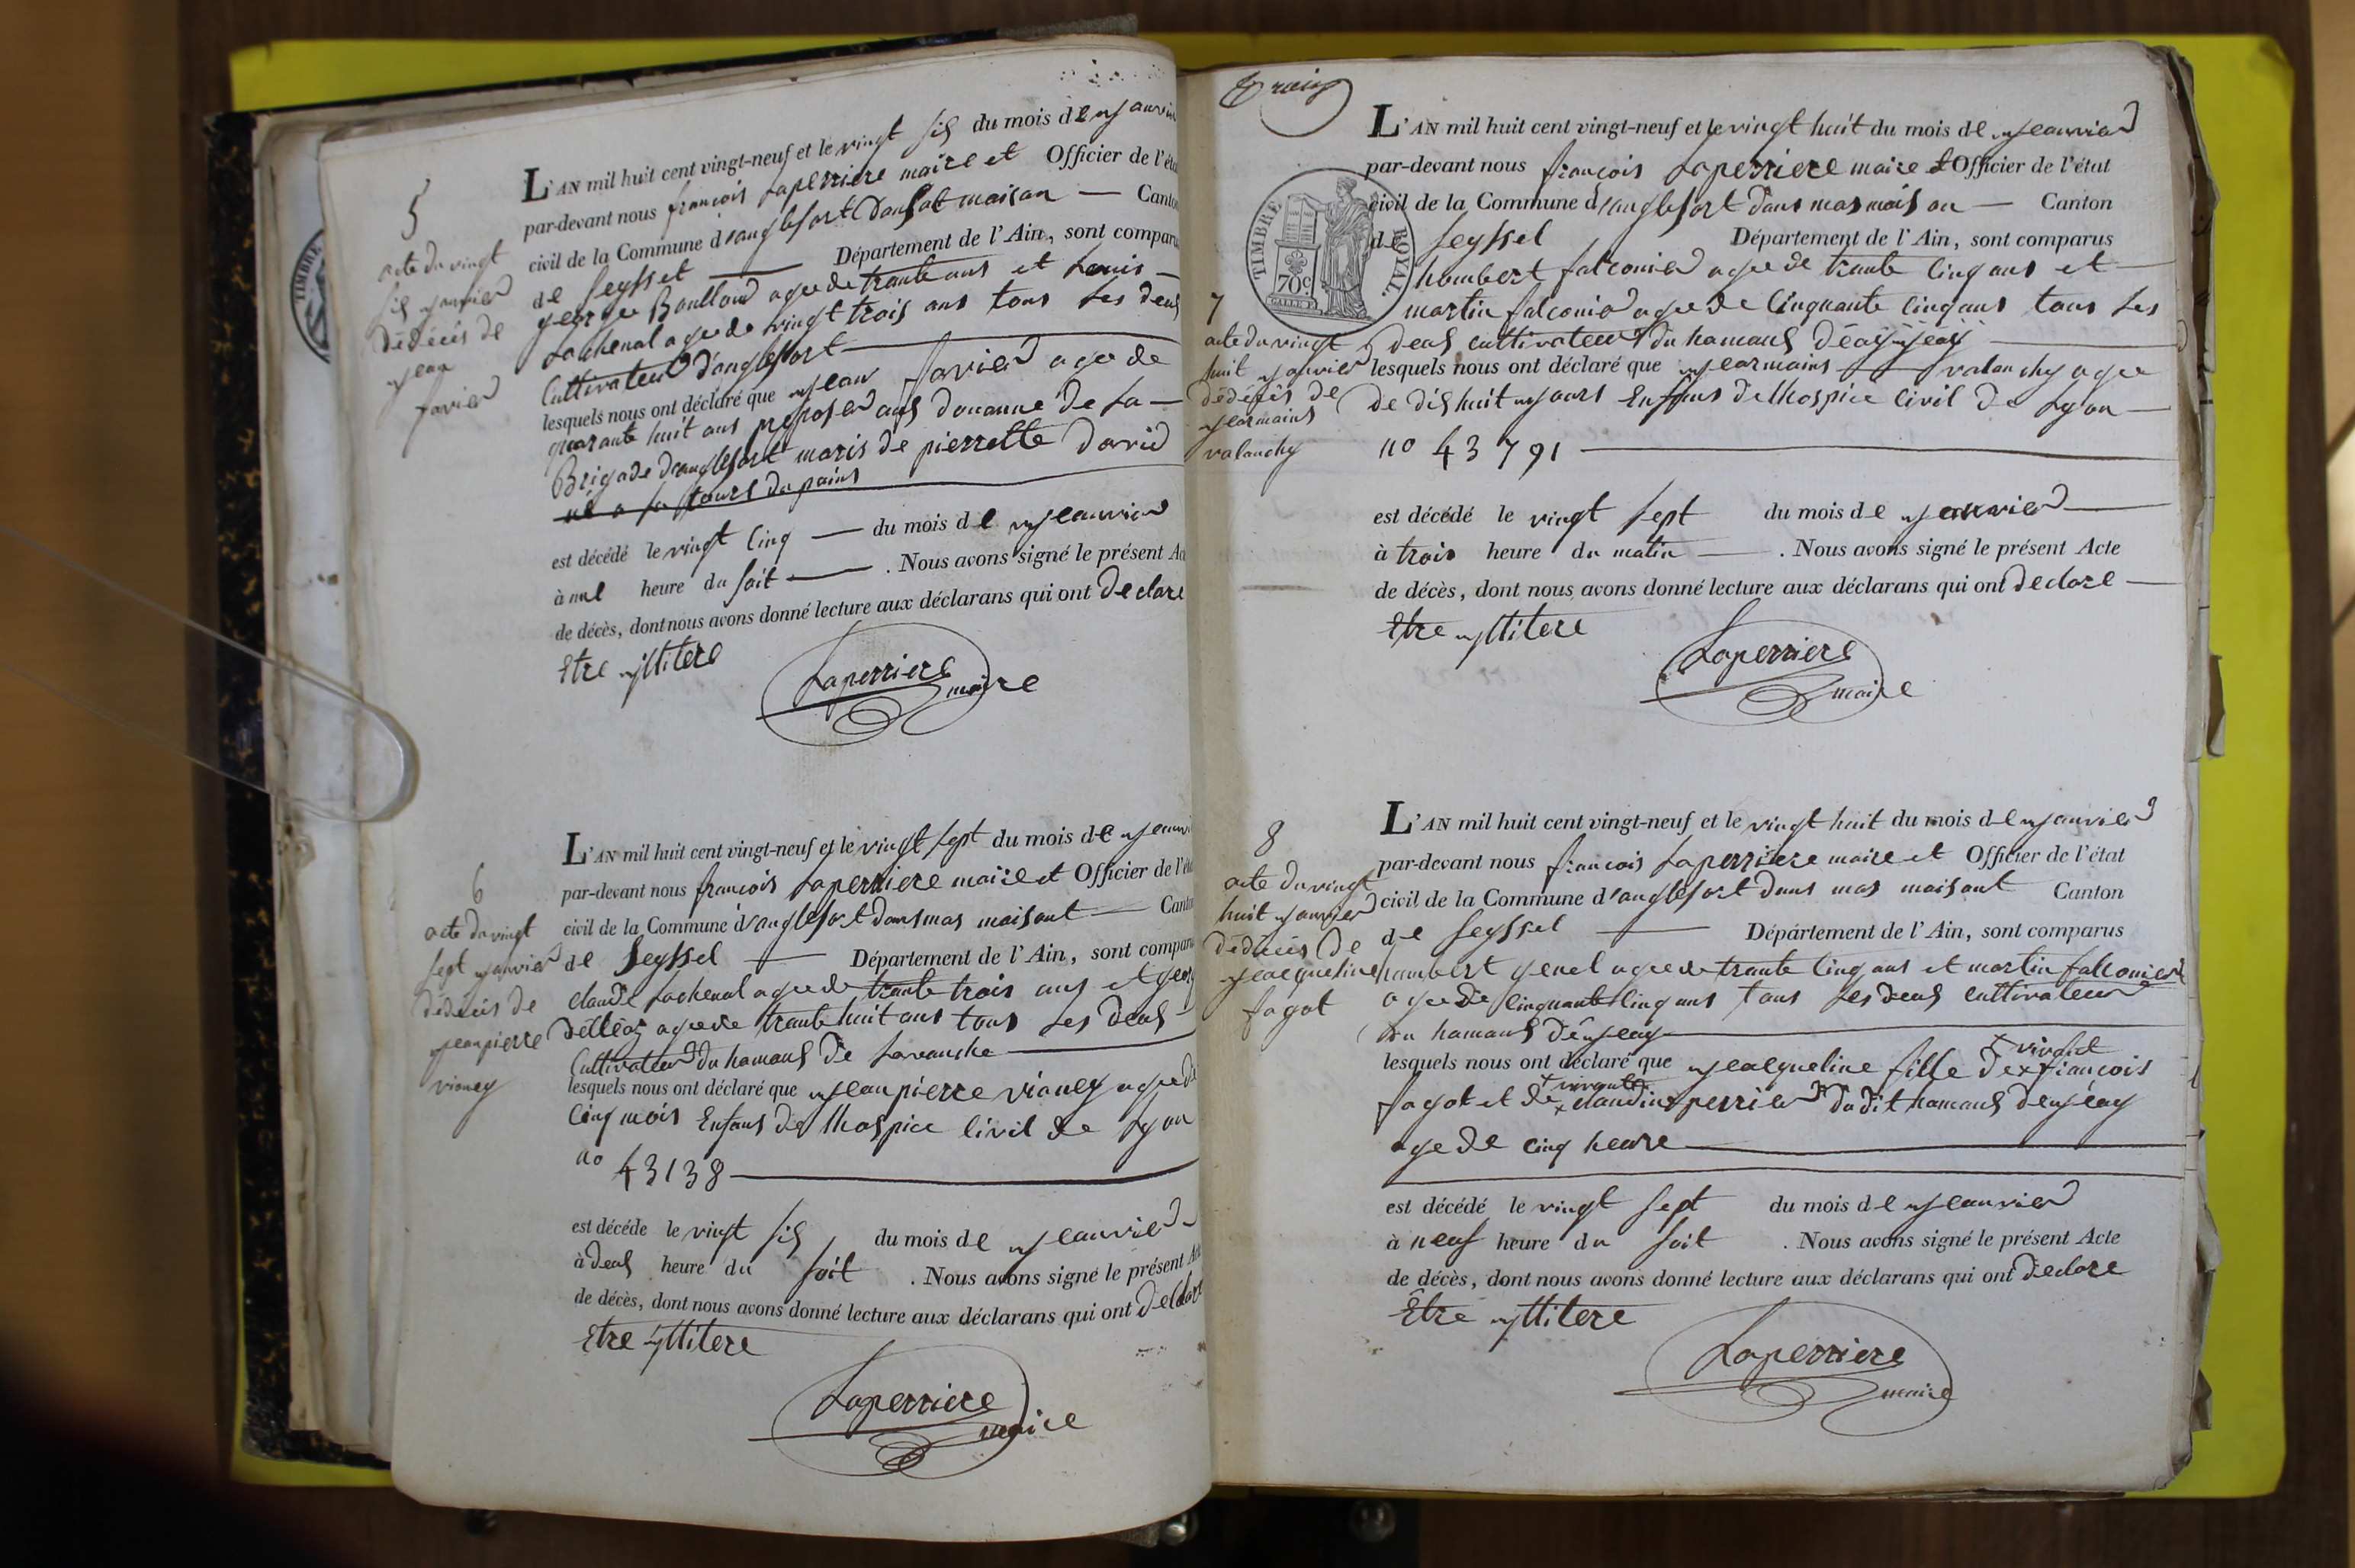 5
acte du vingt
sis janvier
dédécis de
jean
favier
L'AN mil huit cent vingt-neuf et le vingt sis du mois de janvier
par-devant nous françois Laperriere maire et Officier de l'éta
civil de la Commune d'anglefort dans at maison — Canto
de seyssel — Département de l'Ain, sont comparu
george Boullow agee de trante ans et Louis —
Lachenal agee de vingt trois ans tous Les deus
Cultivateur d'anglefort
lesquels nous ont déclaré que jean favier agee de
quarante huit ans preposer aus douanne de La —
Brigade d'anglefort maris de pierrette david
né a la tours du pains
est décédé le vingt cinq — du mois de jeanvier
à une heure du soit — . Nous avons signé le présent Ac
de décès, dont nous avons donné lecture aux déclarans qui ont declare
Etre illitere
Laperriere
maire
6
acte du vingt
sept janvier
dédecis de
jeanpierre
vioney
L'AN mil huit cent vingt-neuf et le vingt sept du mois de jeanvi
par-devant nous françois Laperriere maire et Officier de l'éta
civil de la Commune d'anglefort dans mas maisont — Canto
de Seyssel — Département de l'Ain, sont comparu
claude Lachenal agee de trante trois ans et georg
délléaz agee de trante huit ans tous Les deus
Cultivateur du hamaus de Lavanche
lesquels nous ont déclaré que jeanpierre vioney agee de
cinq mois Enfans de lhospice civil de Lyon
no 43138
est décédé le vingt sis du mois de jeanvier
à deus heure du soit . Nous avons signé le présent Ac
de décès, dont nous avons donné lecture aux déclarans qui ont declare
Etre illitere
Laperriere
maire
TIMBRE ROYAL
70c
7
acte du vingt
huit janvier
dédécis de
jearmains
valanchy
L'AN mil huit cent vingt-neuf et le vingt huit du mois de jeanvier
par-devant nous françois Laperriere maire et Officier de l'état
civil de la Commune d'anglefort dans mas maison — Canton
de seyssel Département de l'Ain, sont comparus
hombert falconier agee de trante cinq ans et
martin falconier agee de cinquante cinq ans tous Les
deus cultivateur du hamaus
lesquels nous ont déclaré que jearmains valanchy agee
de dis huit jours Enfans de lhospice civil de Lyon
no 43791
est décédé le vingt sept du mois de janvier
à trois heure du matin — . Nous avons signé le présent Acte
de décès, dont nous avons donné lecture aux déclarans qui ont declare —
Etre illitere
Laperriere
maire
8
acte du vingt
huit janvier
dédécis de
jeacqueline
fagot
L'AN mil huit cent vingt-neuf et le vingt huit du mois de janvier
par-devant nous françois Laperriere maire et Officier de l'état
civil de la Commune d'anglefort dans mas maisont Canton
de seyssel — Département de l'Ain, sont comparus
humbert genel agee de trante cinq ans et martin falconier
agee de cinquante cinq ans tous Les deus cultivateur
du hamaus dejeay
lesquels nous ont déclaré que jeacqueline fille de × françois
× vivant
fagot et de × claudine perrier du dit hamaus dejeay
× vivante
age de cinq heure
est décédé le vingt sept du mois de jeanvier
à neuf heure du soit . Nous avons signé le présent Acte
de décès, dont nous avons donné lecture aux déclarans qui ont declare
Être illitere
Laperriere
maire